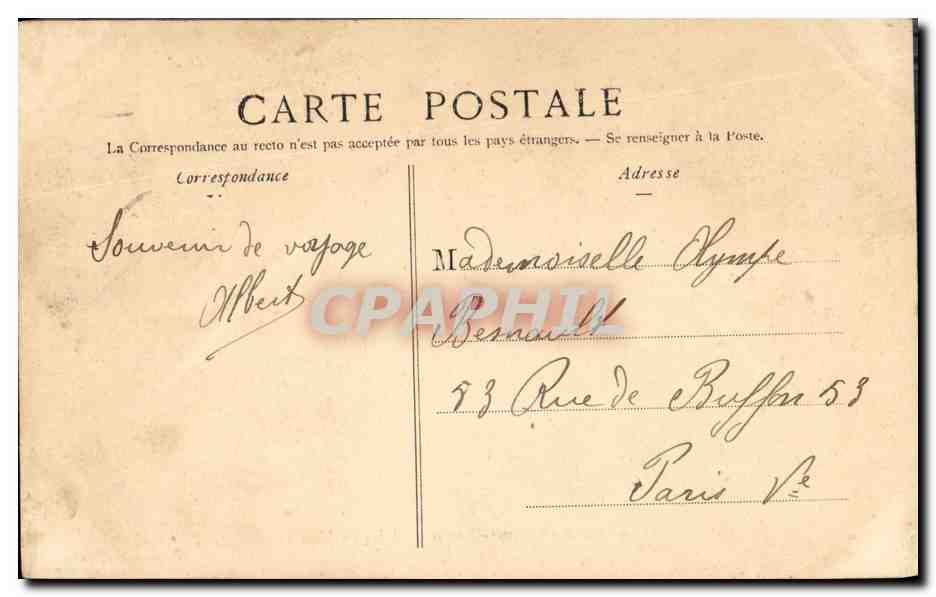 CARTE POSTALE
La Correspondance au recto n'est pas acceptée par tous les pays étrangers. — Se renseigner à la Poste.
Correspondance
Souvenir de voyage
Albert
Adresse
Mademoiselle Olympe
Besnault
53 Rue de Buffon 53
Paris Ve
CPAPHIL